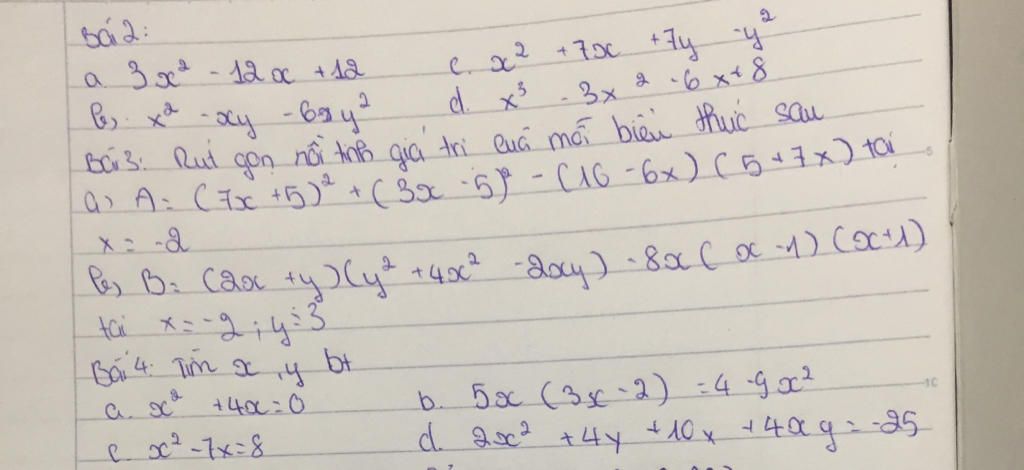 Bài 2:
a. 3x² - 12x + 12 c. x² + 7x + 7y - y²
b, x² - xy - 6xy² d. x³ - 3x² - 6x + 8
Bài 3: Rút gọn rồi tính giá trị cuả mỗi biểu thức sau
a) A = (7x + 5)² + (3x - 5)² - (10 - 6x) (5 + 7x) tại
x = -2
b, B = (2x + y)(y² + 4x² - 2xy) - 8x (x - 1) (x + 1)
tại x = -2 ; y = 3
Bài 4: Tìm x, y bt
a. x² + 4x = 0 b. 5x (3x - 2) = 4 - 9x²
c. x² - 7x = 8 d. 2x² + 4y + 10x + 4xy = -25